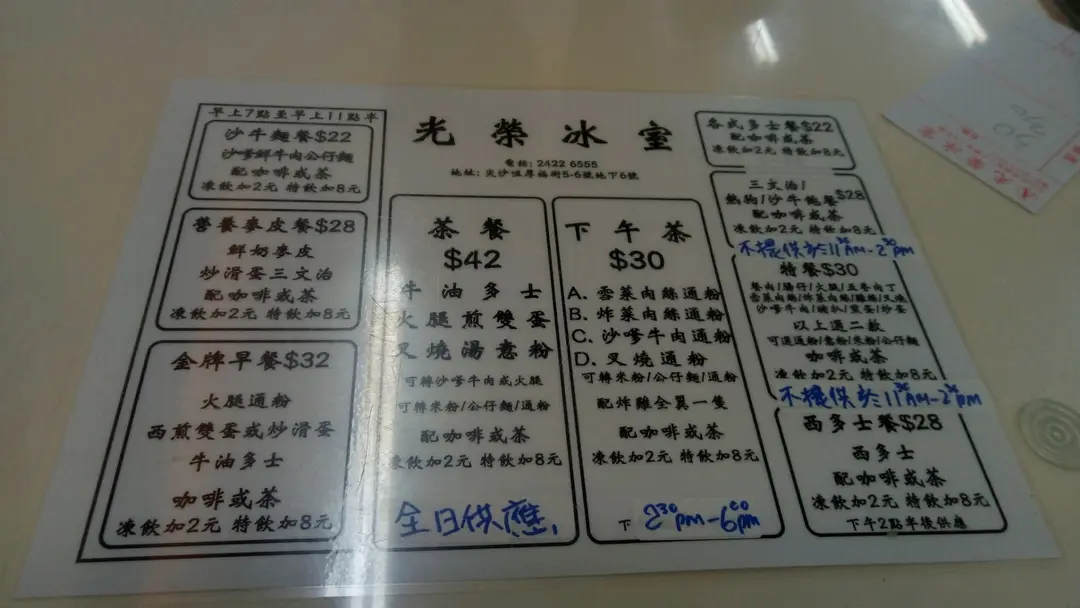 光榮冰室
電話: 2422 6555
地址: 尖沙咀厚福街5-6號地下6號
早上7點至早上11點半
沙牛麵餐$22
沙爹鮮牛肉公仔麵
配咖啡或茶
凍飲加2元 特飲加8元
營養麥皮餐$28
鮮奶麥皮
炒滑蛋三文治
配咖啡或茶
凍飲加2元 特飲加8元
金牌早餐$32
火腿通粉
西煎雙蛋或炒滑蛋
牛油多士
咖啡或茶
凍飲加2元 特飲加8元
茶餐
$42
牛油多士
火腿煎雙蛋
叉燒湯意粉
可轉沙爹牛肉或火腿
可轉米粉/公仔麵/通粉
配咖啡或茶
凍飲加2元 特飲加8元
全日供應,
下午茶
$30
A. 雪菜肉絲通粉
B. 炸菜肉絲通粉
C. 沙爹牛肉通粉
D. 叉燒通粉
可轉米粉/公仔麵/通粉
配炸雞全翼一隻
配咖啡或茶
凍飲加2元 特飲加8元
下 2 30 pm-6 00 pm
各式多士餐$22
配咖啡或茶
凍飲加2元 特飲加8元
三文治/
熱狗/沙牛飽餐$28
配咖啡或茶
凍飲加2元 特飲加8元
不提供於11 30 AM-2 30 pm
特餐$30
餐肉/腸仔/火腿/五香肉丁
雪菜肉絲/炸菜肉絲/雞絲/叉燒
沙爹牛肉/豬扒/煎蛋/炒蛋
以上選二款
可選通粉/意粉/米粉/公仔麵
咖啡或茶
凍飲加2元 特飲加8元
不提供於11 30 AM-2 30 pm
西多士餐$28
西多士
配咖啡或茶
凍飲加2元 特飲加8元
下午2點半後供應